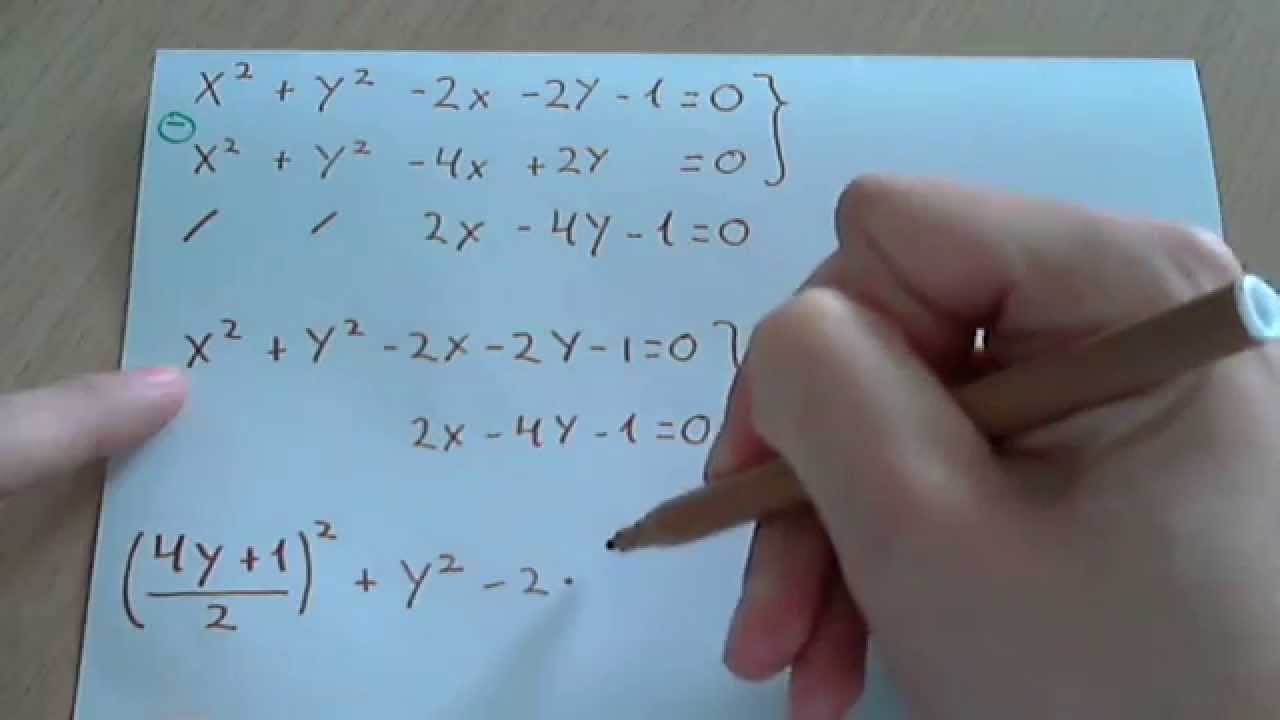 x² + y² - 2x - 2y - 1 = 0 }
⊖
x² + y² - 4x + 2y = 0
/ / 2x - 4y - 1 = 0
x² + y² - 2x - 2y - 1 = 0 }
2x - 4y - 1 = 0
((4y + 1)/2)² + y² - 2 ·